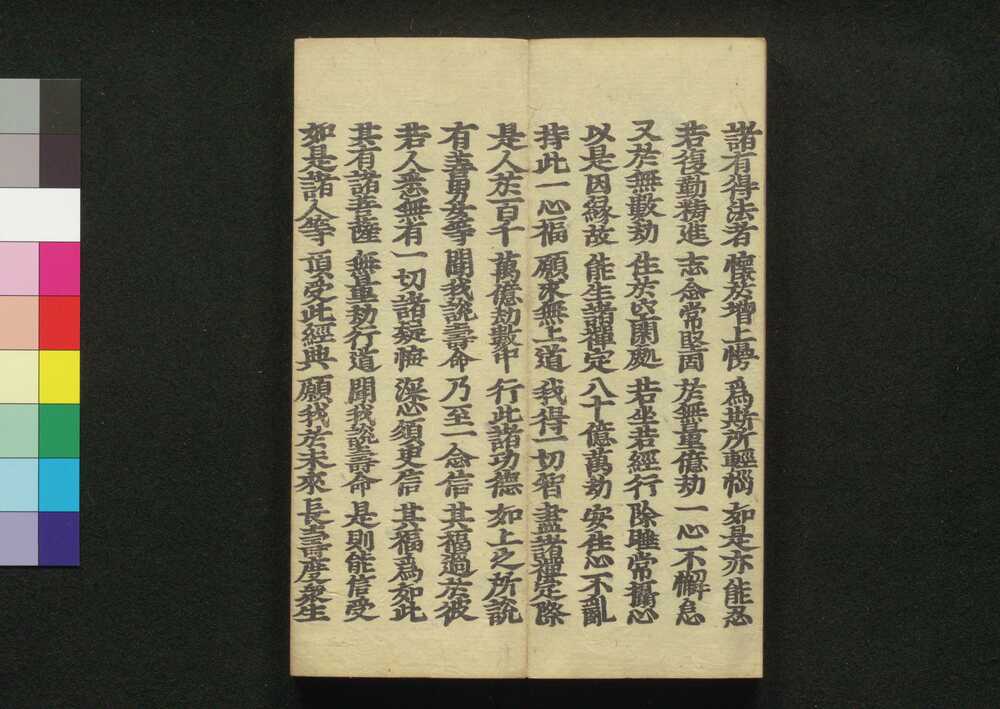 諸有得法者 懷於增上慢 爲斯所輕惱 如是亦能忍
若復勤精進 志念常堅固 於無量億劫 一心不懈怠
又於無數劫 住於空閑處 若坐若經行 除睡常攝心
以是因縁故 能生諸禪定 八十億萬劫 安住心不亂
持此一心福 願求無上道 我得一切智 盡諸禪定際
是人於百千 萬億劫數中 行此諸功德 如上之所說
有善男女等 聞我說壽命 乃至一念信 其福過於彼
若人悉無有 一切諸疑悔 深心須臾信 其福爲如此
其有諸菩薩 無量劫行道 聞我說壽命 是則能信受
如是諸人等 頂受此經典 願我於未來 長壽度衆生